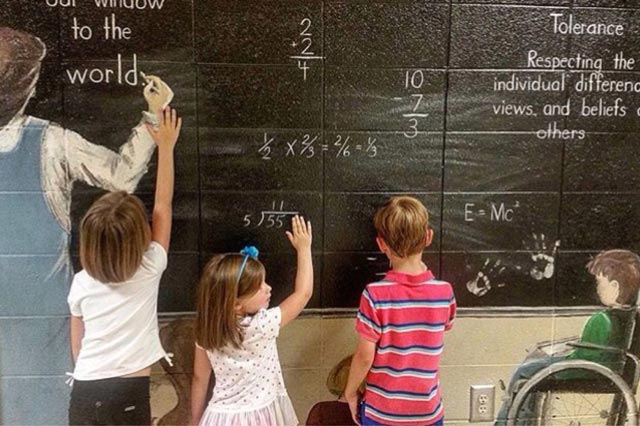 our window
to the
world.
2
+2
4
10
-7
3
1/2 x 2/3 = 2/6 = 1/3
11
5)55
E = Mc²
Tolerance
Respecting the
individual
views, and beliefs
others